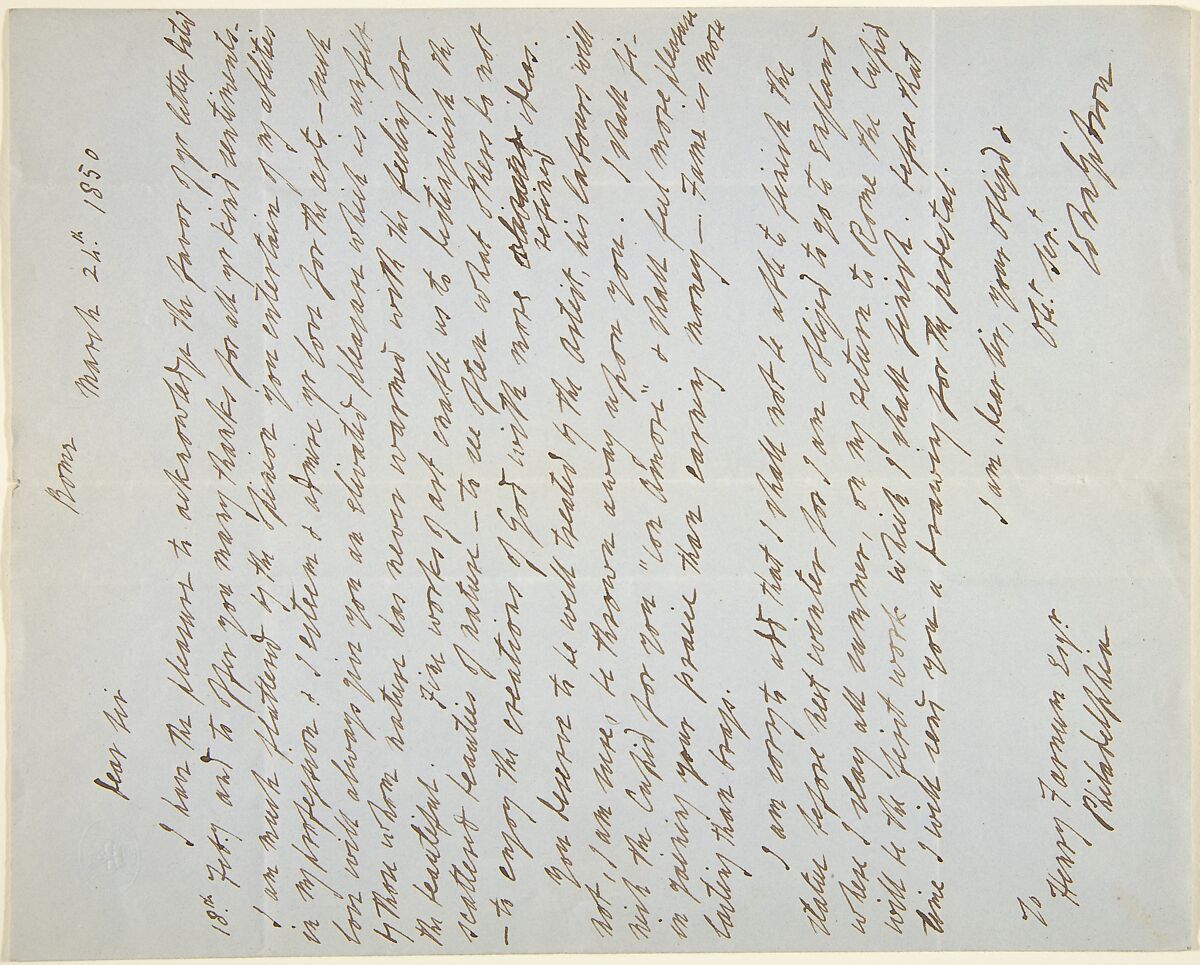 Rome
March 24th 1850
Dear Sir
I have the pleasure to acknowledge the favor of yr letter dated
18th Feby and to offer you many thanks for all yr kind sentiments.
I am much flattered by the opinion you entertain of my abilities
in my profession & I esteem & admire yr love for the arts – such
love will always give you an elevated pleasure which is unfelt
by those whom nature has never warmed with the feeling for
the beautiful. Fine works of art enable us to distinguish the
scattered beauties of nature – to see often what others do not
– to enjoy the creations of God with more refined ideas.
You deserve to be well treated by the artist, his labours will
not, I am sure, be thrown away upon you. I shall fi-
nish the Cupid for you "con Amore" & shall feel more pleasure
in gaining your praise than earning money – Fame is more
lasting than brass.
I am sorry to add that I shall not be able to finish the
statue before next winter for I am obliged to go to England
where I stay all summer, on my return to Rome the Cupid
will be the first work which I shall finish. before that
time I will send you a drawing for the pedestal.
I am, dear Sir, your obliged &
Obt. Ser.t
To
Henry Farnum Esqr.
Philadelphia